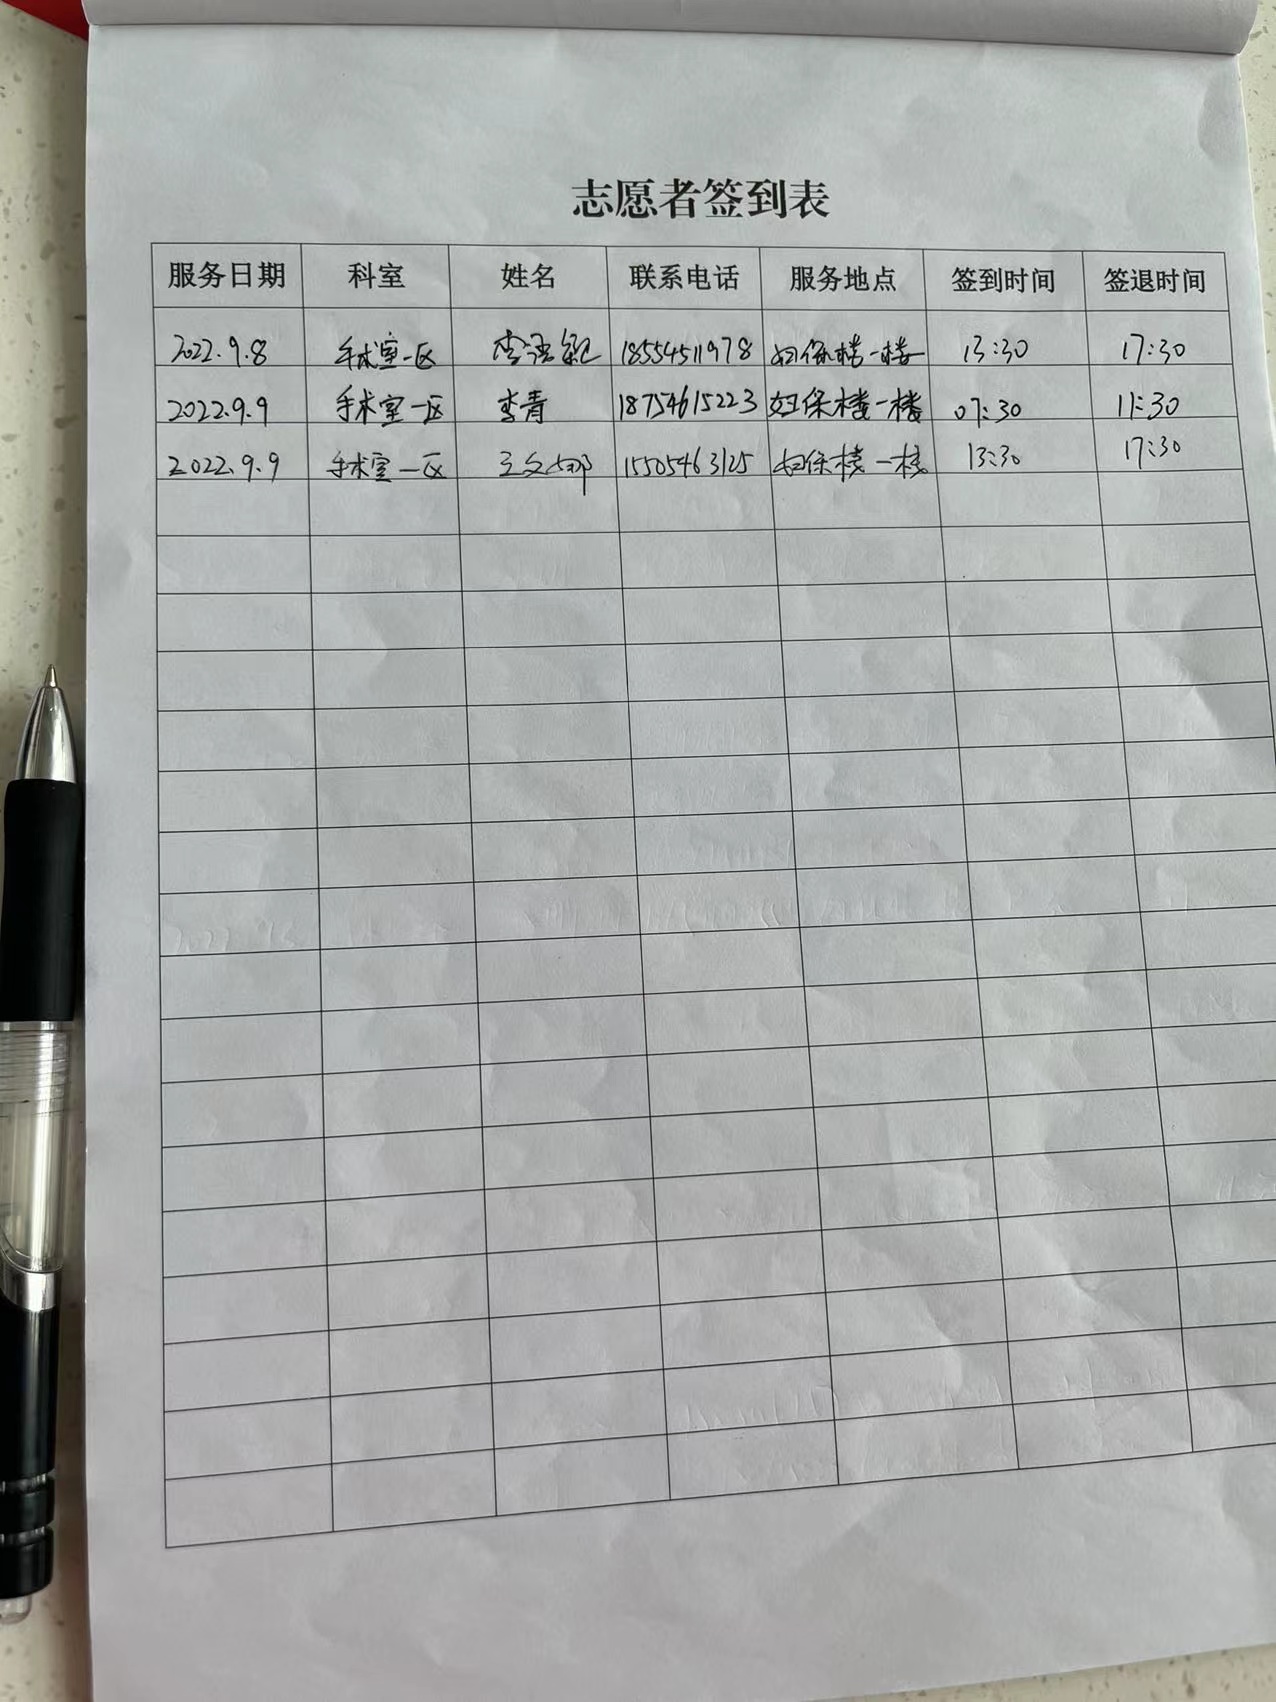 志愿者签到表
服务日期 科室 姓名 联系电话 服务地点 签到时间 签退时间
2022.9.8 手术室一区 李 18554511978 妇保楼一楼 13:30 17:30
2022.9.9 手术室一区 李青 18754615223 妇保楼一楼 07:30 11:30
2022.9.9 手术室一区 王文 15505463125 妇保楼一楼 13:30 17:30